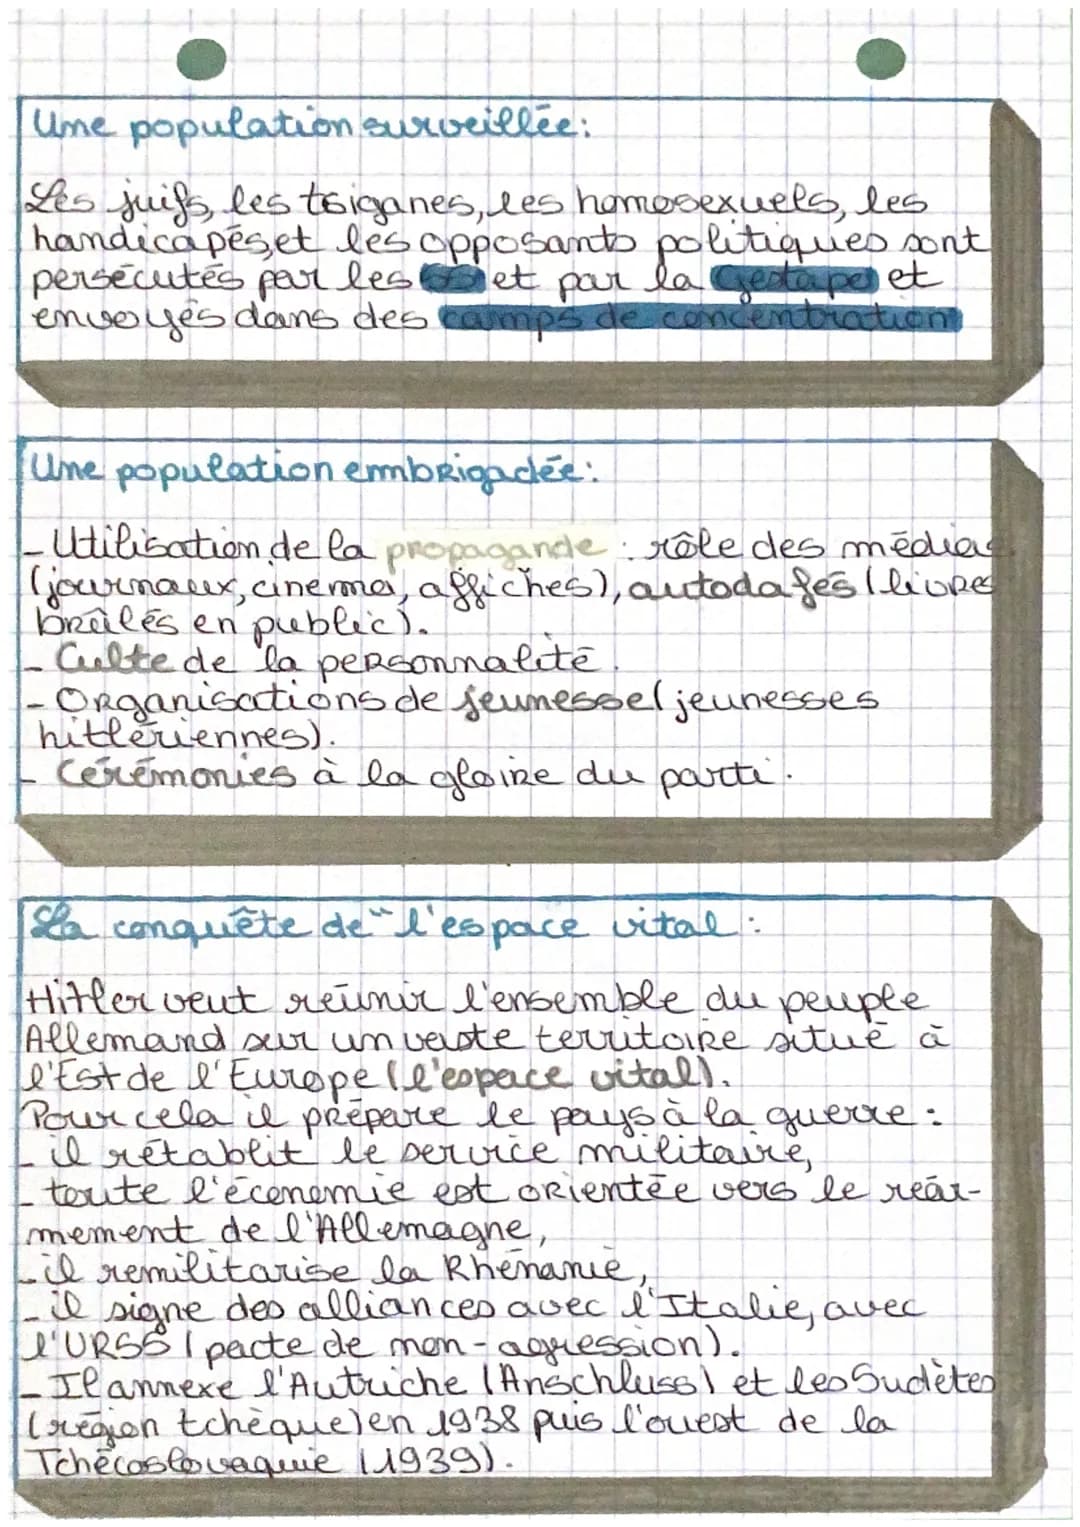 Une population surveillée:
Les juifs, les tsiganes, les homosexuels, les
handicapés,et les opposants politiques sont
persécutés par les SS et par la Gestapo et
envoyés dans des camps de concentration
Une population embrigadée:
- Utilisation de la propagande : rôle des médias
(journaux, cinema, affiches), autodafés (livres
brûlés en public).
- Culte de la personnalité.
- Organisations de jeunesse (jeunesses
hitlériennes).
- Cérémonies à la gloire du parti.
La conquête de "l'espace vital :
Hitler veut réunir l'ensemble du peuple
Allemand sur un vaste territoire situé à
l'Est de l'Europe (l'espace vital).
Pour cela il prépare le pays à la guerre :
- il rétablit le service militaire,
- toute l'économie est orientée vers le réar-
mement de l'Allemagne,
- il remilitarise la Rhénanie,
- il signe des alliances avec l'Italie, avec
l'URSS (pacte de non-agression).
- Il annexe l'Autriche (Anschluss) et les Sudètes
(région tchèque) en 1938 puis l'ouest de la
Tchécoslovaquie (1939).